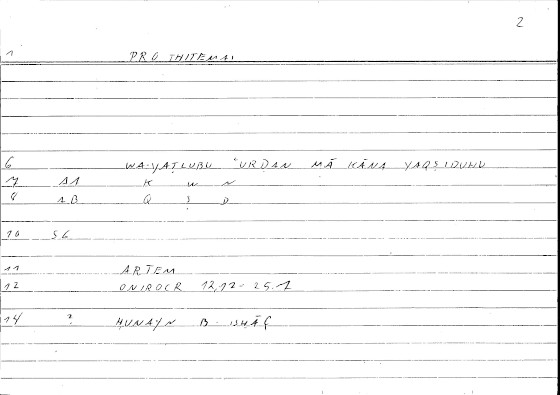 2
1 PROTHITEMAI
6 WA-YAṬLUBU ʿURḌAN MĀ KĀNA YAQṢIDUHU
7 A1 K W N
8 AB Q Ṣ D
10 56
11 ARTEM
12 ONIROCR 12,12 - 25.1
14 ? ḤUNAYN B. ISḤĀQ